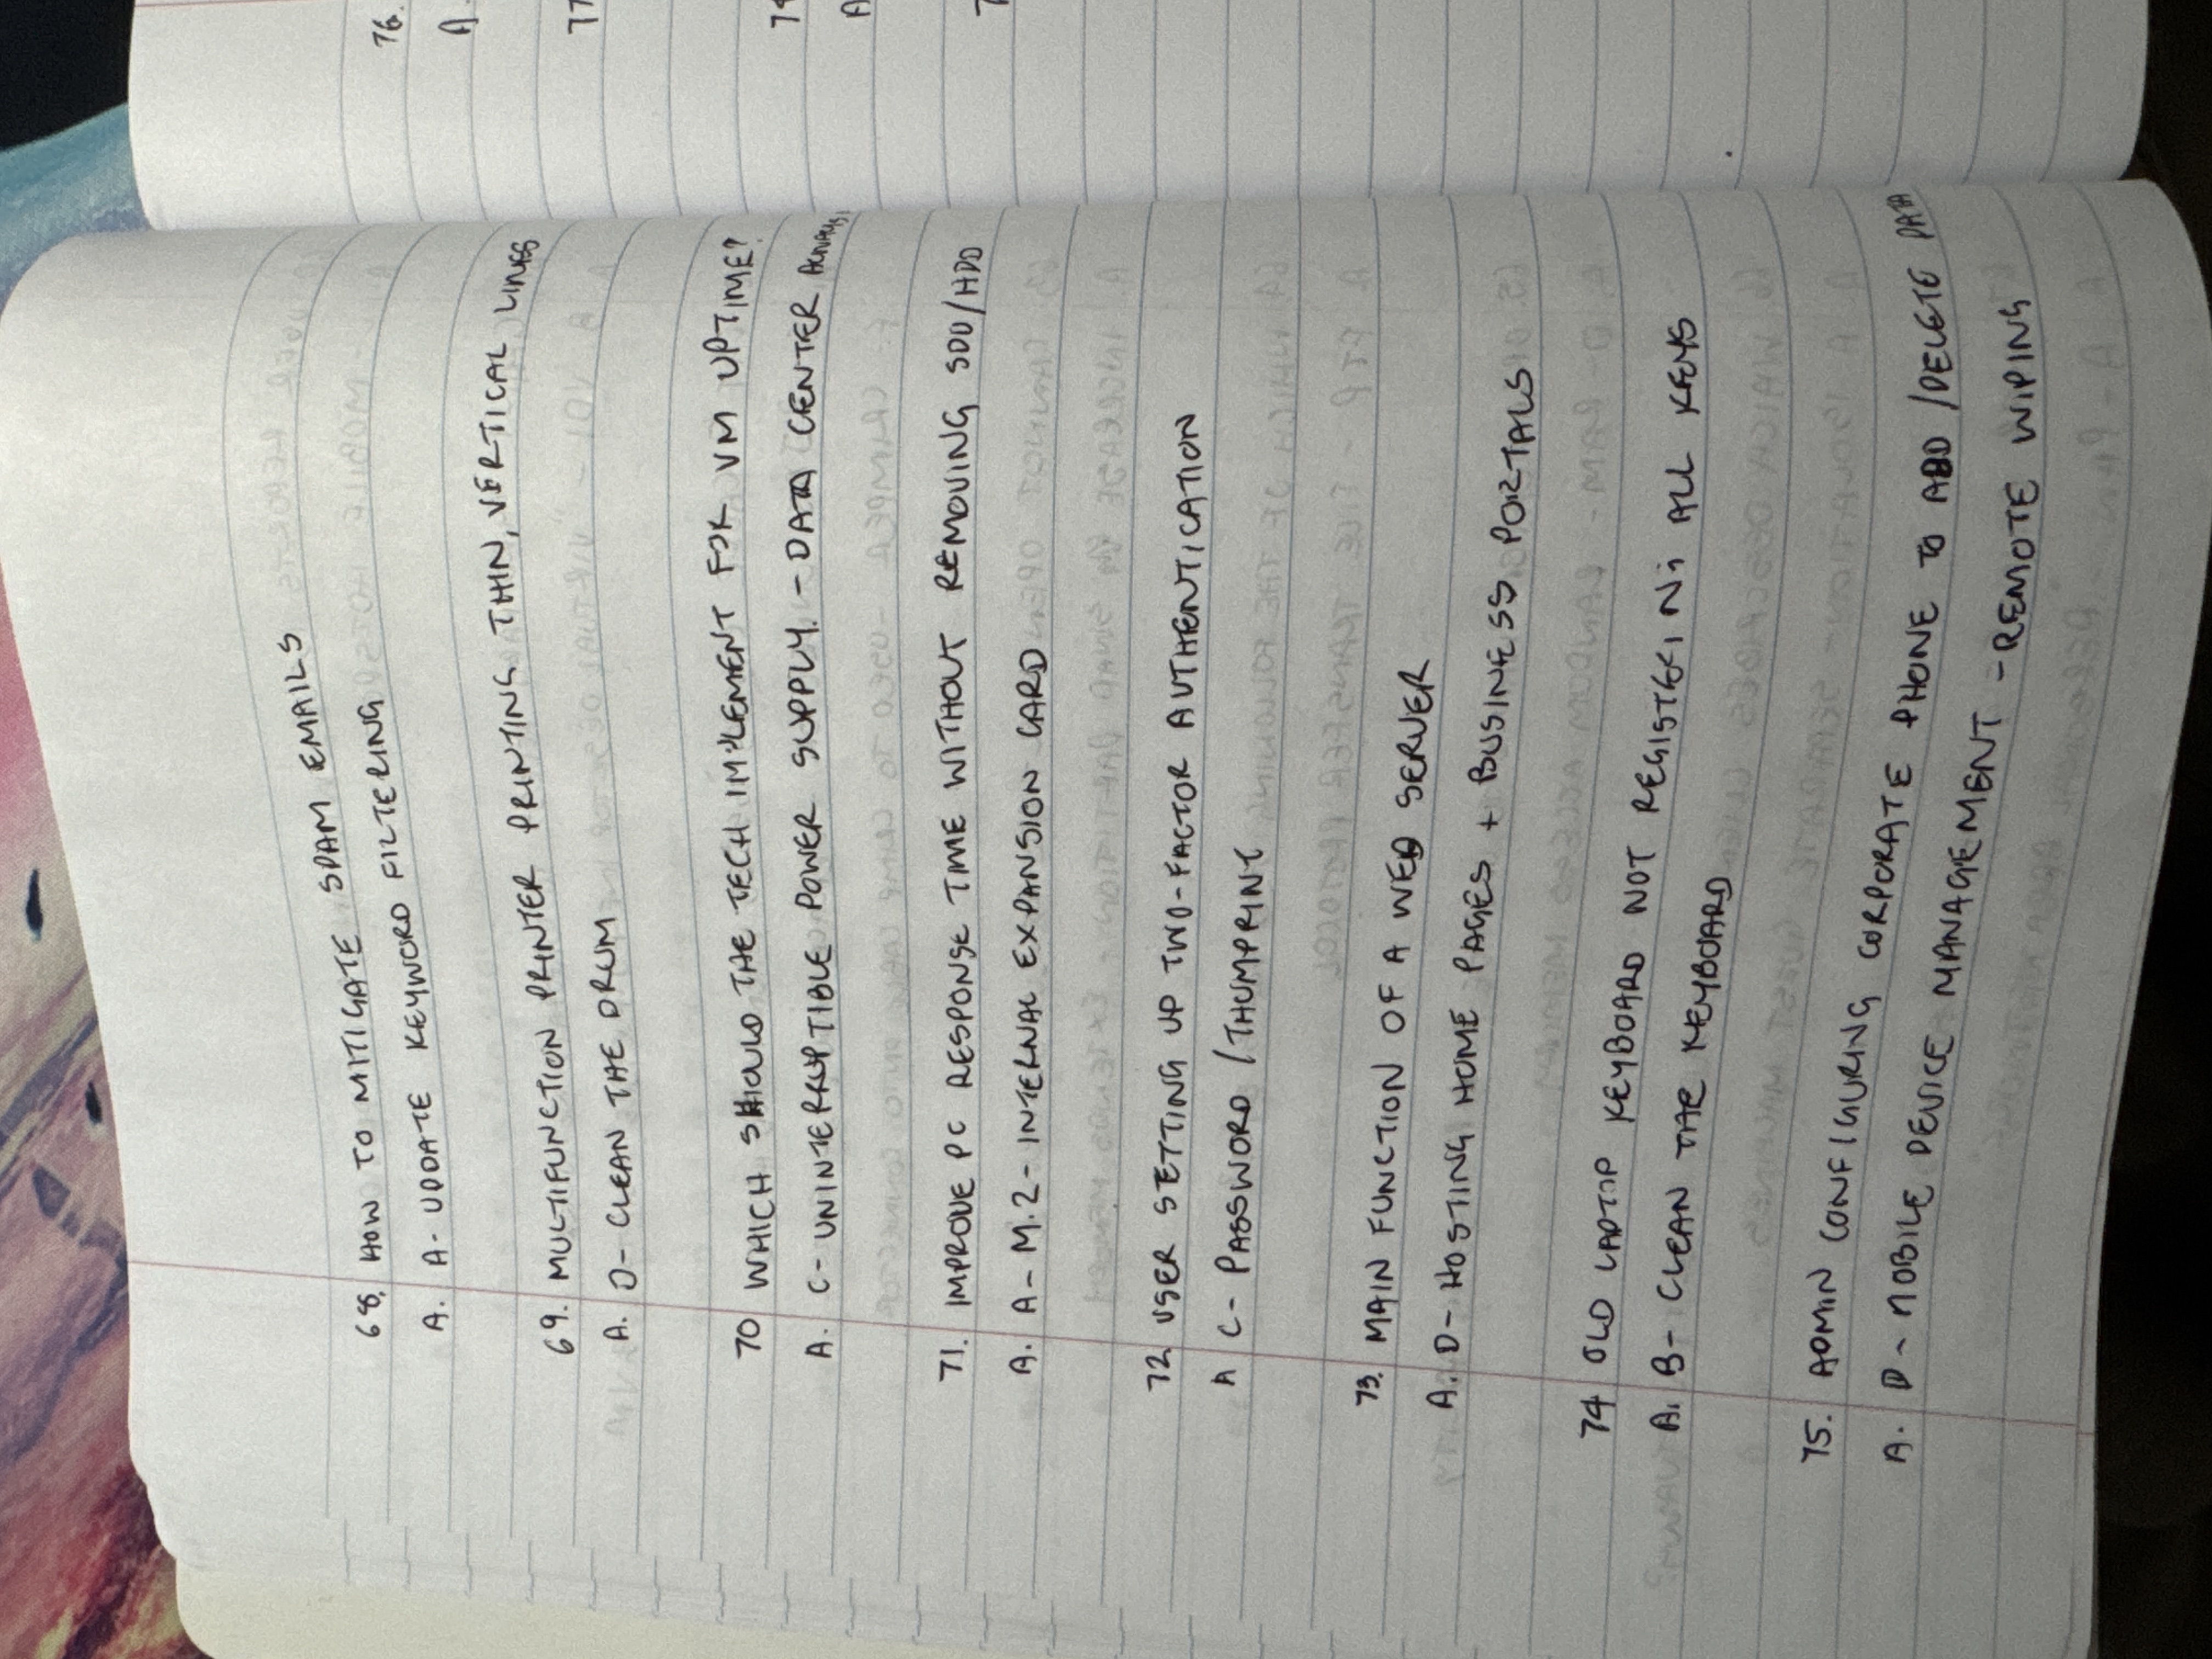 68. HOW TO MITIGATE SPAM EMAILS
A. A- UPDATE KEYWORD FILTERING
69. MULTIFUNCTION PRINTER PRINTING THIN, VERTICAL LINES
A. D- CLEAN THE DRUM
70 WHICH SHOULD THE TECH IMPLEMENT FOR VM UPTIME?
A. C- UNINTERRUPTIBLE POWER SUPPLY. - DATA CENTER ALWAYS!
71. IMPROVE PC RESPONSE TIME WITHOUT REMOVING SDD/HDD
A. A- M.2- INTERNAL EXPANSION CARD
72 USER SETTING UP TWO-FACTOR AUTHENTICATION
A C- PASSWORD /THUMPRINT
73. MAIN FUNCTION OF A WEB SERVER
A. D- HOSTING HOME PAGES + BUSINESS PORTALS
74 OLD LAPTOP KEYBOARD NOT REGISTERING ALL KEYS
A. B- CLEAN THE KEYBOARD
75. ADMIN CONFIGURING CORPORATE PHONE TO ADD /DELETE DATA
A. D- MOBILE DEVICE MANAGEMENT - REMOTE WIPING
76.
A.
77
A